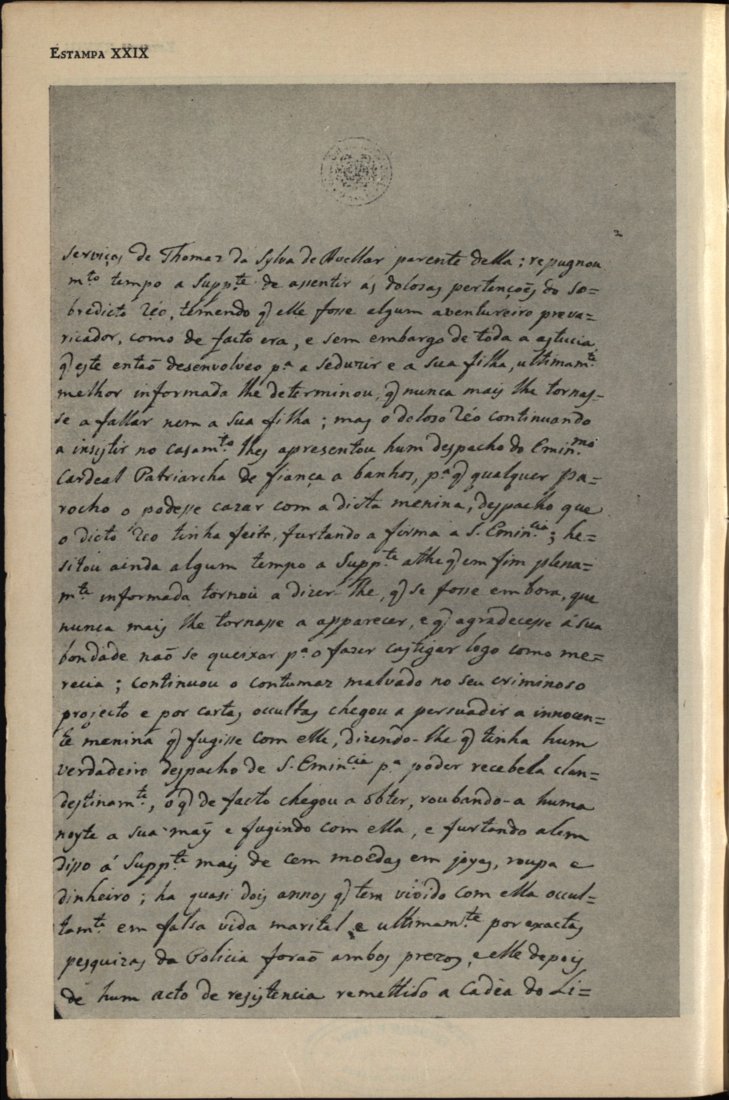 Estampa XXIX
2
serviços de Thomaz da Sylva de Avellar parente della; repugnou
mto tempo a Suppte de assentir as dolosas pertenções do so=
bredicto Réo, temendo q elle fosse algum aventureiro preva=
ricador, como de facto era, e sem embargo de toda a astucia,
q este então desenvolveo pa a seduzir e a sua filha, ultimamte
melhor informada lhe determinou, q nunca mais lhe tornas-
se a fallar nem a sua filha; mas o doloso Réo continuando
a insistir no casamto lhes apresentou hum despacho do Eminmo
Cardeal Patriarcha de fiança a banhos, pa q qualquer Pa=
rocho o podesse cazar com a dicta menina, despacho que
o dicto Réo tinha feito, furtando a firma a S. Emincia; he=
sitou ainda algum tempo a Suppte athe q em fim plena=
mte informada tornou a dizer-lhe, q se fosse embora, que
nunca mais lhe tornasse a apparecer, e q agradecesse á sua
bondade não se queixar pa o fazer castigar logo como me=
recia; continuou o contumaz malvado no seu criminoso
projecto e por cartas occultas chegou a persuadir a innocen=
te menina q fugisse com elle, dizendo-lhe q tinha hum
verdadeiro despacho de S. Emincia pa poder recebela clan=
destinamte, o q de facto chegou a obter, roubando-a huma
noyte a sua maỹ e fugindo com ella, e furtando alem
disso á Suppte mais de cem moedas em joyas, roupa e
dinheiro; ha quasi dois annos q tem vivido com ella occul=
tamte em falsa vida marital e ultimamte por exactas
pesquizas da Policia forão ambos prezos, e elle depois
de hum acto de resistencia remettido a Cadêa do Li=